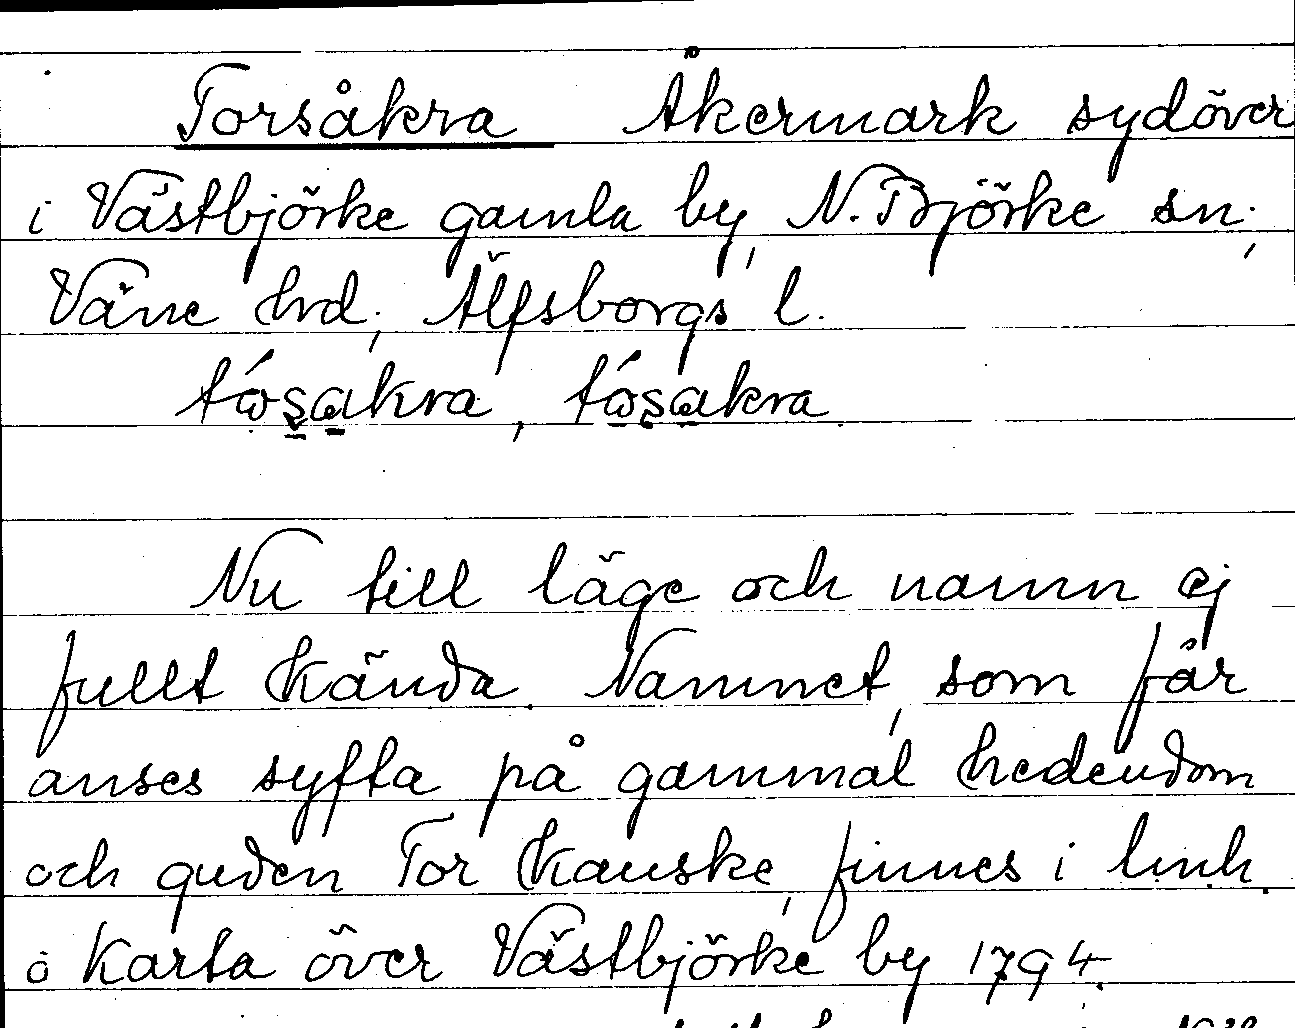 Torsåkra Åkermark sydöver
i Västbjörke gamla by, N. Björke sn.,
Väne hrd., Älfsborgs l.
tósakra, tósakra
Nu till läge och namn ej
fullt kända. Namnet, som får
anses syfta på gammal hedendom
och guden Tor kanske, finnes i
å karta över Västbjörke by 1794.